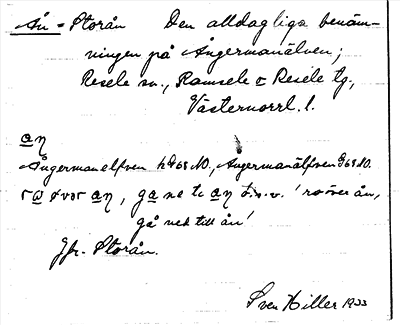 Ån = Storån Den alldagliga benäm-
ningen på Ångermanälven;
Resele sn., Ramsele o Resele tg.,
Västernorrl. l.
an
Ångermanelfven 68 NO, Ångermanälfven 68 NO.
ro över an, ga ne te an o.s.v. 'ro över ån,
gå ned till ån'
Jfr. Storån.
Sven Hiller 1933